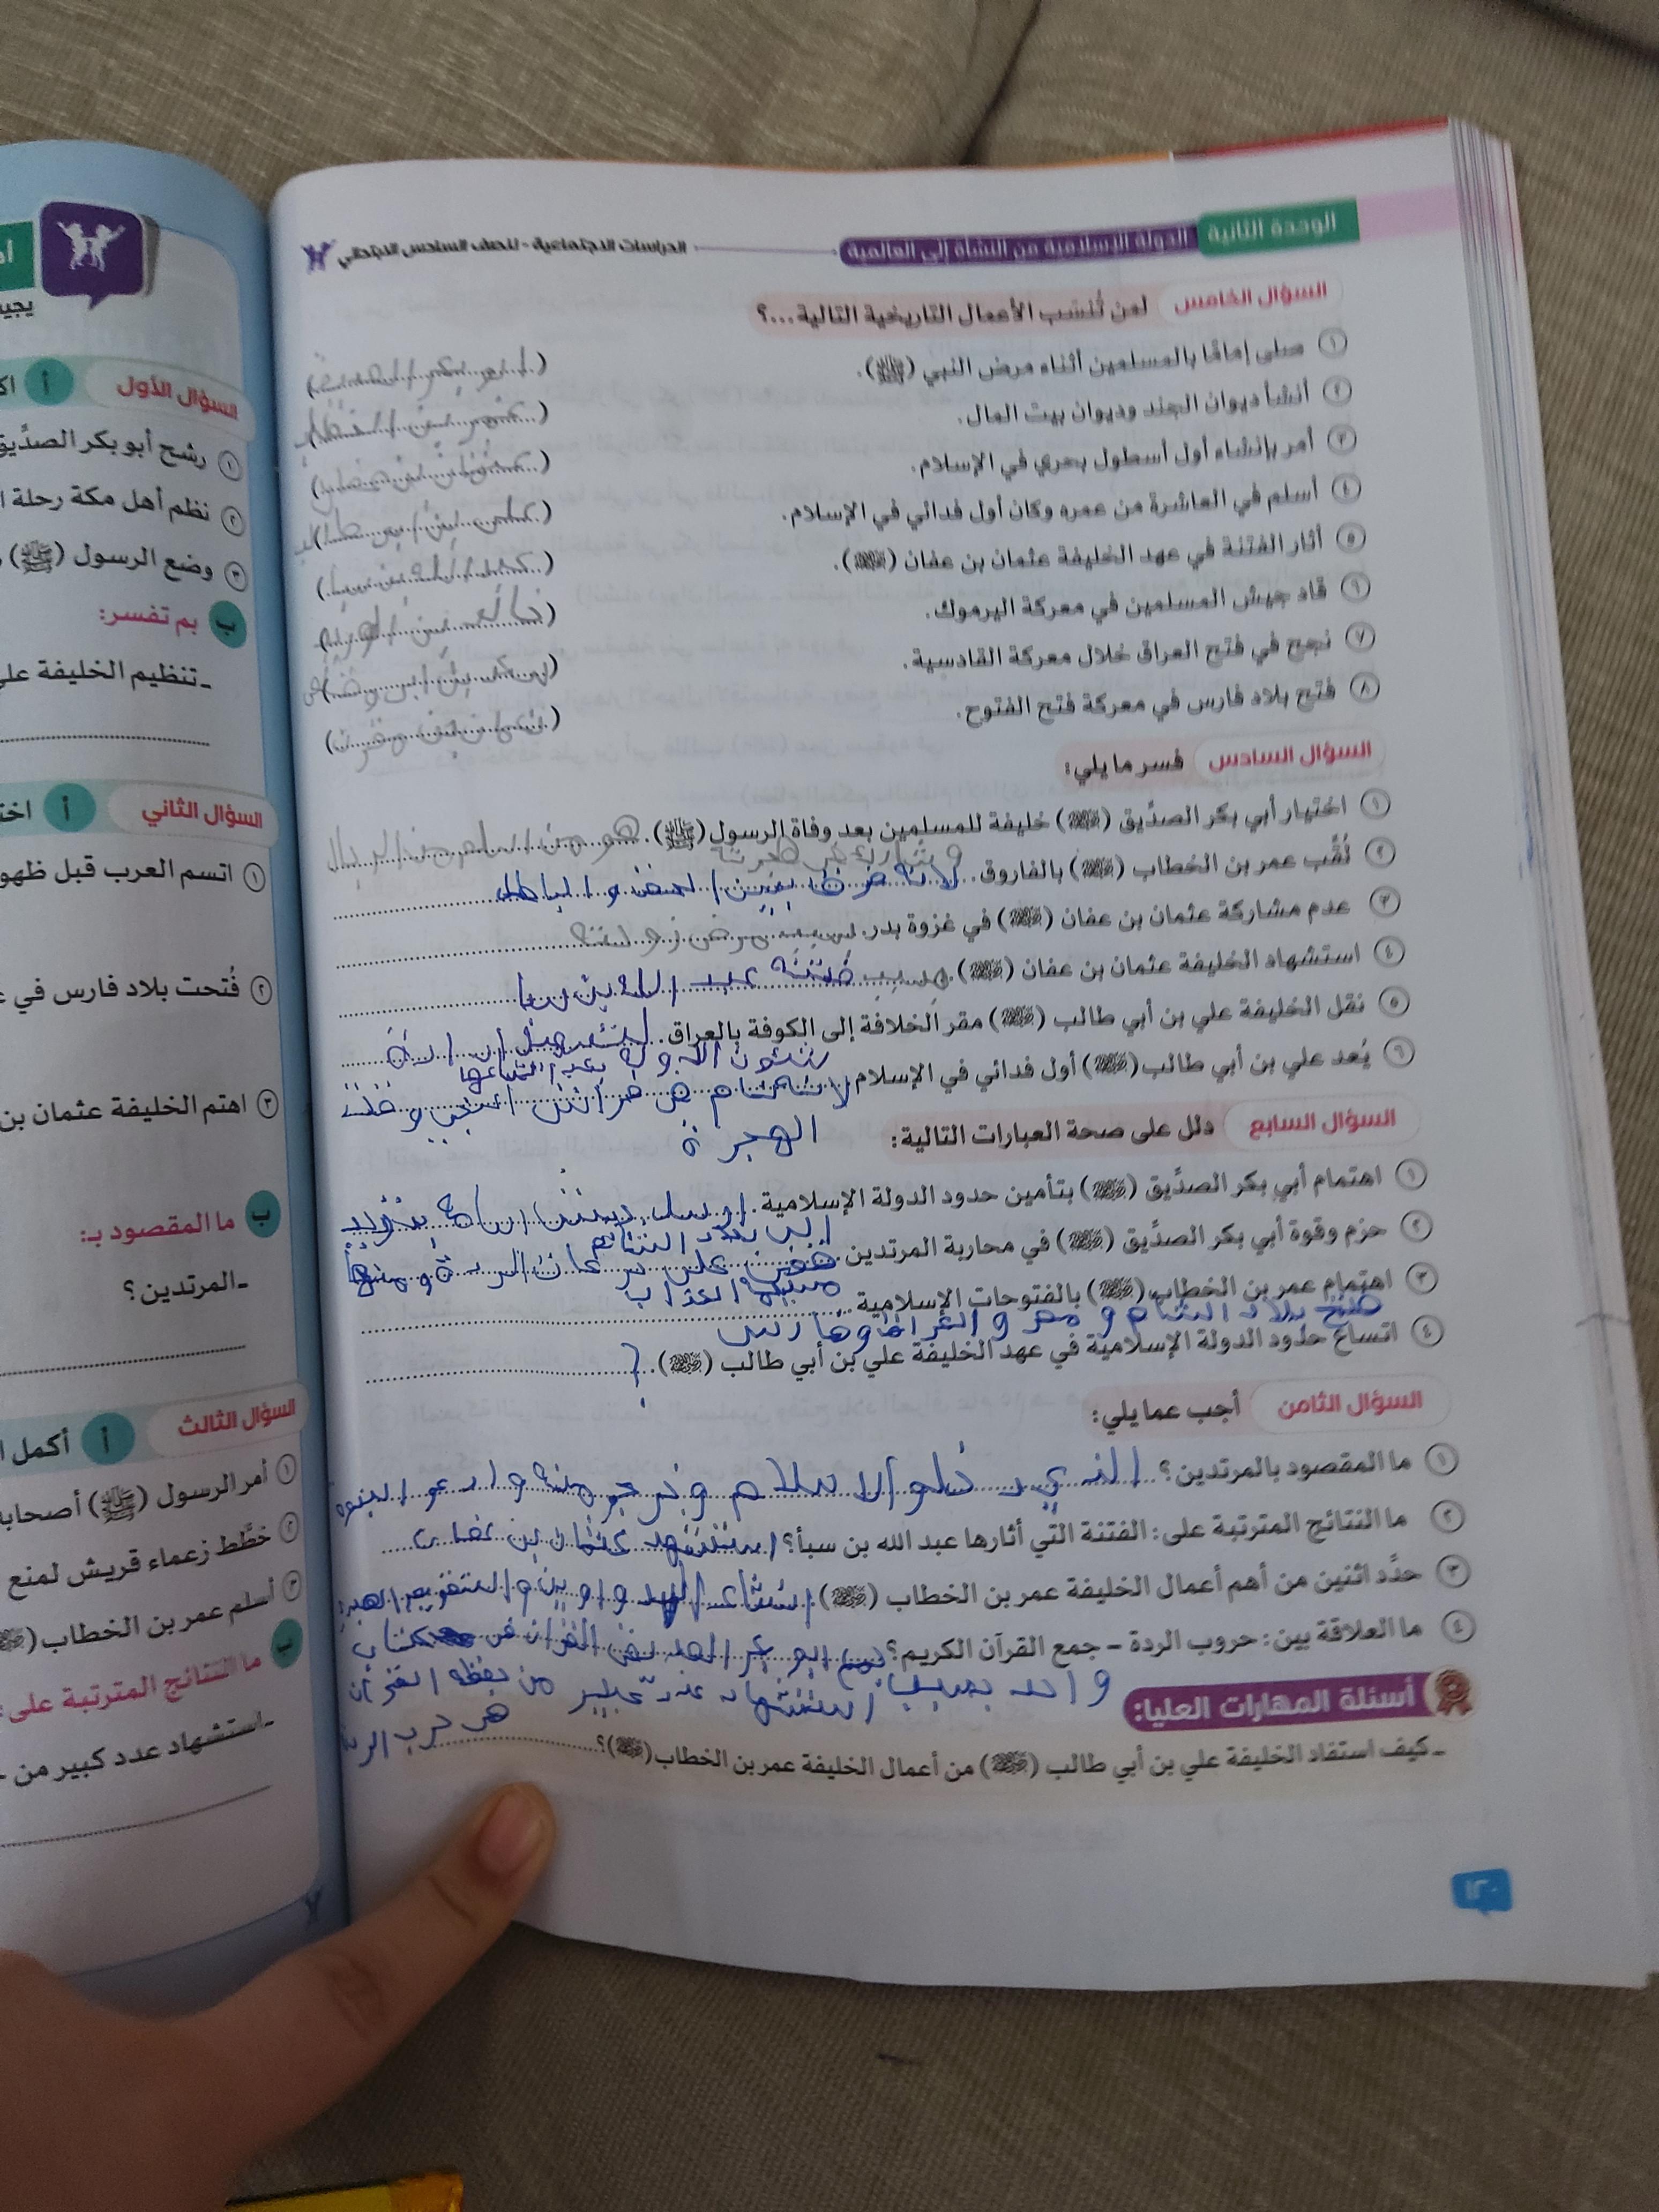 الوحدة الثانية الدولة الإسلامية من النشأة إلى العالمية الدراسات الاجتماعية - للصف السادس الابتدائي
السؤال الخامس لمن تُنسَب الأعمال التاريخية التالية...؟
١ صلى إمامًا بالمسلمين أثناء مرض النبي (ﷺ). (ابو بكر الصديق)
٢ أنشأ ديوان الجند وديوان بيت المال. (عمر بن الخطاب)
٣ أمر بإنشاء أول أسطول بحري في الإسلام. (عثمان بن عفان)
٤ أسلم في العاشرة من عمره وكان أول فدائي في الإسلام. (علي بن ابي طالب)
٥ أثار الفتنة في عهد الخليفة عثمان بن عفان (). (عبد الله بن سبا)
٦ قاد جيش المسلمين في معركة اليرموك. (خالد بن الوليد)
٧ نجح في فتح العراق خلال معركة القادسية. (سعد بن ابي وقاص)
٨ فتح بلاد فارس في معركة فتح الفتوح. (بن مقرن)
السؤال السادس فسر ما يلي:
١ اختيار أبي بكر الصدِّيق () خليفة للمسلمين بعد وفاة الرسول (ﷺ). هو من الرجال
هجرته
٢ لُقِّب عمر بن الخطاب () بالفاروق. لانه فرق بين الحق و الباطل
٣ عدم مشاركة عثمان بن عفان () في غزوة بدر. بسبب مرض زوجته
٤ استشهاد الخليفة عثمان بن عفان (). بسبب فتنه عبد الله بن سبا
٥ نقل الخليفة علي بن أبي طالب () مقر الخلافة إلى الكوفة بالعراق. لتسهيل ادارة
شئون الدولة بعد اتساعها
٦ يُعد علي بن أبي طالب () أول فدائي في الإسلام. لانه نام في فراش النبي وقت
الهجرة
السؤال السابع دلل على صحة العبارات التالية:
١ اهتمام أبي بكر الصدِّيق () بتأمين حدود الدولة الإسلامية. ارسل جيش اسامة بن زيد
الى بلاد الشام
٢ حزم وقوة أبي بكر الصدِّيق () في محاربة المرتدين. على الردة ومنها
مسيلمة الكذاب
٣ اهتمام عمر بن الخطاب () بالفتوحات الإسلامية
فتح بلاد الشام و مصر و العراق وفارس
٤ اتساع حدود الدولة الإسلامية في عهد الخليفة علي بن أبي طالب (). ؟
السؤال الثامن أجب عما يلي:
١ ما المقصود بالمرتدين؟ الاسلام وخرجو منه و ادعو النبوه
٢ ما النتائج المترتبة على: الفتنة التي أثارها عبد الله بن سبأ؟ استشهد عثمان بن عفان
٣ حدِّد اثنتين من أهم أعمال الخليفة عمر بن الخطاب (). انشاء الدواوين و التقويم الهجري
٤ ما العلاقة بين: حروب الردة – جمع القرآن الكريم؟ ابو بكر الصديق القران في كتاب
واحد بسبب استشهاد عدد كبير من حفظه القرآن
في حرب الردة
أسئلة المهارات العليا:
ـ كيف استفاد الخليفة علي بن أبي طالب () من أعمال الخليفة عمر بن الخطاب ()؟
١٢٠
يجيب
السؤال الأول أ
١ رشح أبو بكر الصدِّيق
٢ نظم أهل مكة رحلة
٣ وضع الرسول (ﷺ)
ب بم تفسر:
ـ تنظيم الخليفة
السؤال الثاني أ
١ اتسم العرب قبل
٢ فُتحت بلاد فارس في
٣ اهتم الخليفة عثمان بن
ب ما المقصود بـ:
ـ المرتدين؟
السؤال الثالث أ أكمل
١ أمر الرسول (ﷺ)
٢ خطَّط زعماء قريش لمنع
٣ أسلم عمر بن الخطاب
ب ما النتائج المترتبة على:
ـ استشهاد عدد كبير من